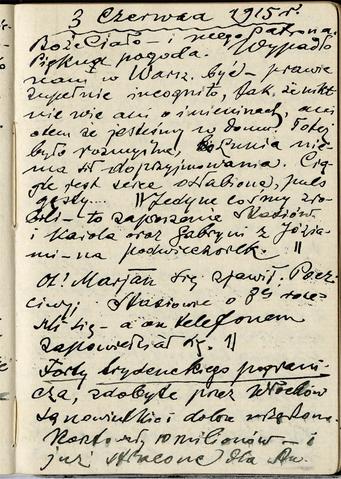 3 Czerwca 1915 r.
Boże Ciało – i mego Patrona.
Piękna pogoda. Wypadło
nam w Warsz. być – prawie
zupełnie incognito, tak, że nikt
nie wie ani o imieninach, ani
o tem że jesteśmy w domu. Toteż
było rozmyślne, bo nie
ma sił do przyjmowania. Cią-
gle jest serce osłabione, puls
gęsty... || Jedyne cośmy zro-
bili – to zaproszenie Stasiów
i Karola oraz Gabryni z Józia-
mi – na podwieczorek. ||
Ot! Marjan się zjawił. Pocz-
ciwy; Stasiowie o 8ej
się – a on telefonem
zapowiedział się. ||
Forty trydenckiego pograni-
cza, zdobyte przez Włochów
są nowiutkie i dobrze urządzone.
Kosztowały milionów – i
już stracone dla Au.